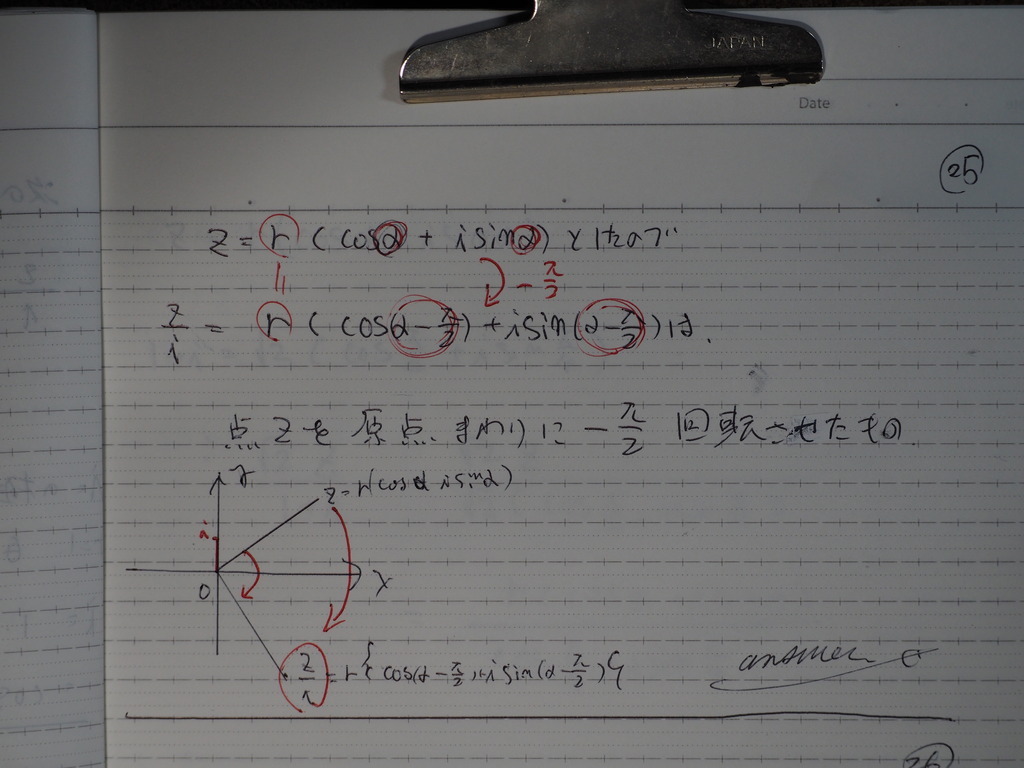 JAPAN
Date
25
z = r (cosα + i sinα) と比べ
- π/2
z/i = r (cos(α - π/2) + i sin(α - π/2)) は.
点 z を 原点 まわりに - π/2 回転させたもの.
y
z = r(cosα i sinα)
i
O
x
z/i = r{cos(α - π/2) + i sin(α - π/2)}
answer
26